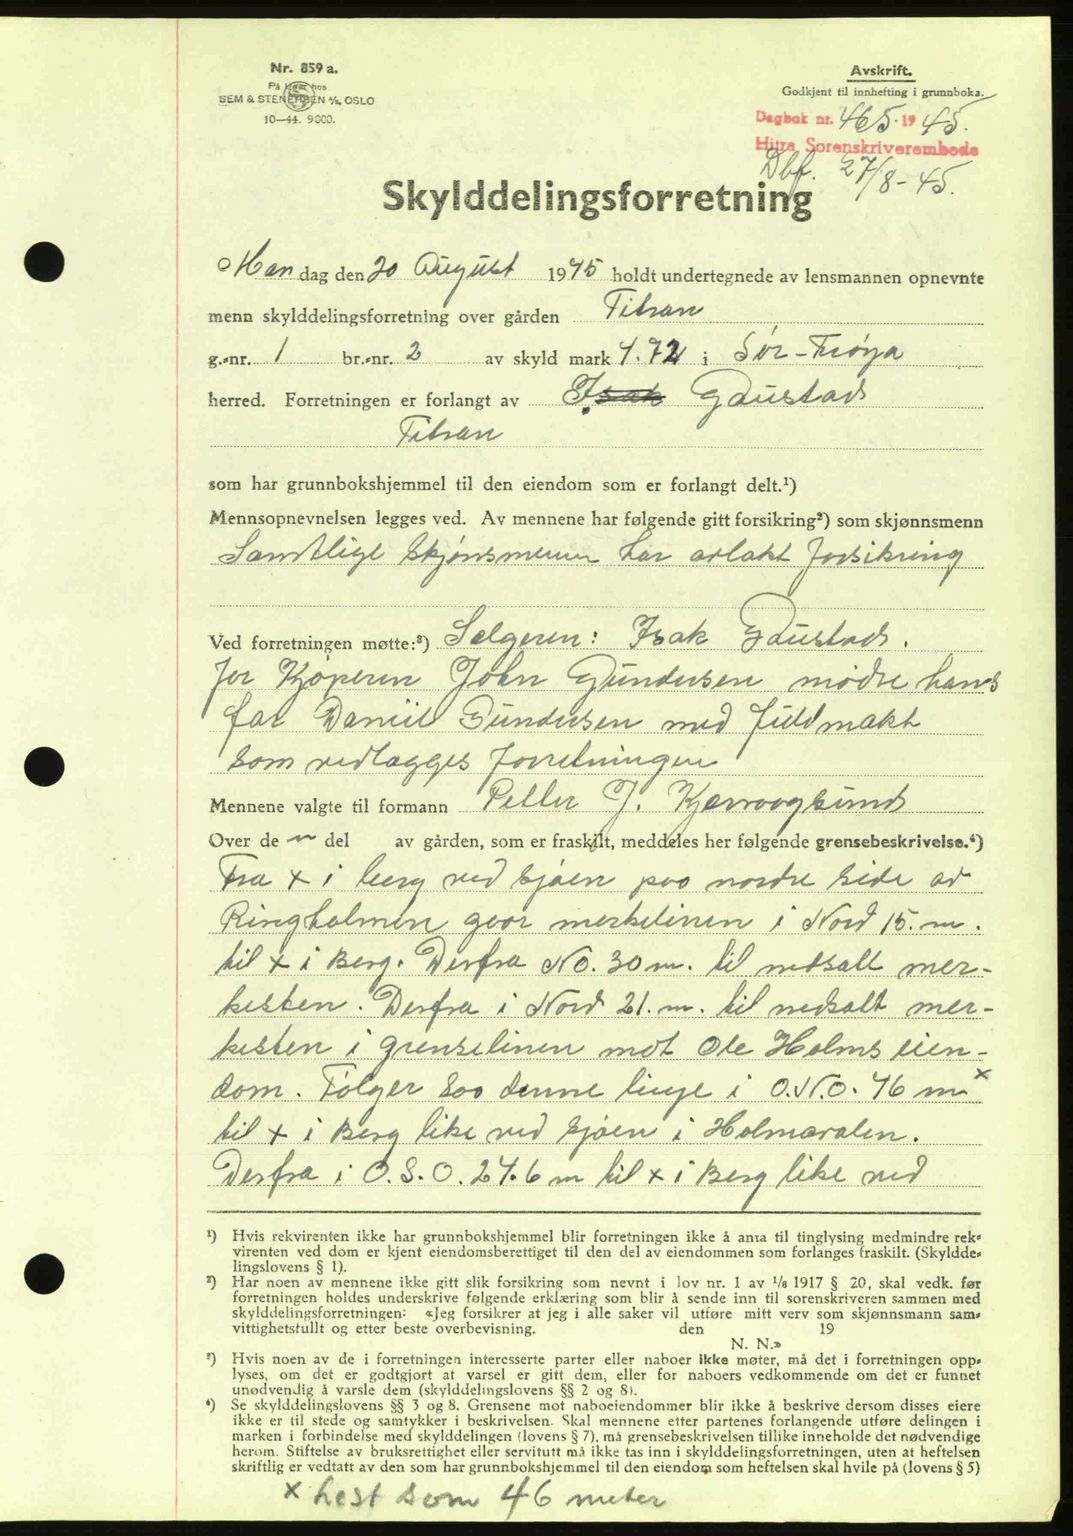 Nr. 859 a.
På lager hos
SEM & STENERSEN A/S, OSLO
10—44. 9000.
Avskrift.
Godkjent til innhefting i grunnboka.
Dagbok nr. 465. 1945.
Hitra Sorenskriverembede
Dbf. 27/8-45.
Skylddelingsforretning
Man dag den 20 August 1945 holdt undertegnede av lensmannen opnevnte
menn skylddelingsforretning over gården Titran
g.-nr. 1 br.-nr. 2 av skyld mark 4.72 i Sør-Frøya
herred. Forretningen er forlangt av Isak Gaustad
Titran
som har grunnbokshjemmel til den eiendom som er forlangt delt.¹)
Mennsopnevnelsen legges ved. Av mennene har følgende gitt forsikring²) som skjønnsmenn
Samtlige skjønsmenn har avlakt forsikring
Ved forretningen møtte:³) Selgeren: Isak Gaustad.
for Kjøperen John Gundersen mødte hans
far Daniel Gundersen med fuldmakt
som vedlægges forretningen
Mennene valgte til formann Petter J. Kjervaagsund
Over de n del av gården, som er fraskilt, meddeles her følgende grensebeskrivelse.⁴)
Fra x i berg ved sjøen paa nordre side av
Ringholmen gaar merkelinen i Nord 15. m.
til x i Berg. Derfra NO. 30 m. til nedsatt mer-
kesten. Derfra i Nord 21. m. til nedsatt mer-
kesten i grenselinen mot Ole Holms eien-
dom. Følger saa denne linje i O.N.O. 76 m x
til x i Berg like ved sjøen i Holmavalen.
Derfra i O.S.O. 24.6 m til x i Berg like ved
¹) Hvis rekvirenten ikke har grunnbokshjemmel blir forretningen ikke å anta til tinglysing medmindre rek-
virenten ved dom er kjent eiendomsberettiget til den del av eiendommen som forlanges fraskilt. (Skyldde-
lingslovens § 1).
²) Har noen av mennene ikke gitt slik forsikring som nevnt i lov nr. 1 av 1/8 1917 § 20, skal vedk. før
forretningen holdes underskrive følgende erklæring som blir å sende inn til sorenskriveren sammen med
skylddelingsforretningen: «Jeg forsikrer at jeg i alle saker vil utføre mitt verv som skjønnsmann sam-
vittighetsfullt og etter beste overbevisning. den 19
N. N.»
³) Hvis noen av de i forretningen interesserte parter eller naboer ikke møter, må det i forretningen opp-
lyses, om det er godtgjort at varsel er gitt dem, eller for naboers vedkommende om det er funnet
unødvendig å varsle dem (skylddelingslovens §§ 2 og 8).
⁴) Se skylddelingslovens §§ 3 og 8. Grensene mot naboeiendommer blir ikke å beskrive dersom disses eiere
ikke er til stede og samtykker i beskrivelsen. Skal mennene etter partenes forlangende utføre delingen i
marken i forbindelse med skylddelingen (lovens § 7), må grensebeskrivelsen tillike inneholde det nødvendige
herom. Stiftelse av bruksrettighet eller servitutt må ikke tas inn i skylddelingsforretningen, uten at heftelsen
skriftlig er vedtatt av den som har grunnbokshjemmel til den eiendom som heftelsen skal hvile på (lovens § 5)
x lest som 46 meter